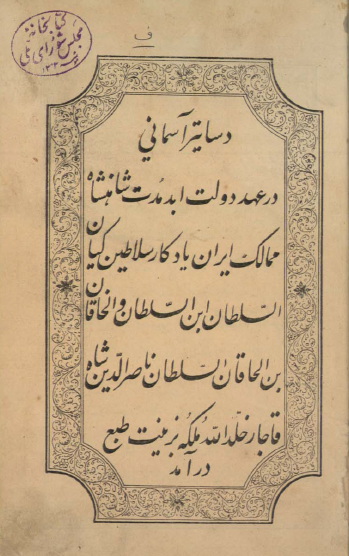 ف
کتابخانه
مجلس شورای ملی
دساتیر آسمانی
در عهد دولت ابد مدت شاهنشاه
ممالک ایران یادکار سلاطین کیان
السلطان ابن السلطان والخاقان
بن الخاقان السلطان ناصر الدین شاه
قاجار خلّد الله ملکه بزینت طبع
در آمد